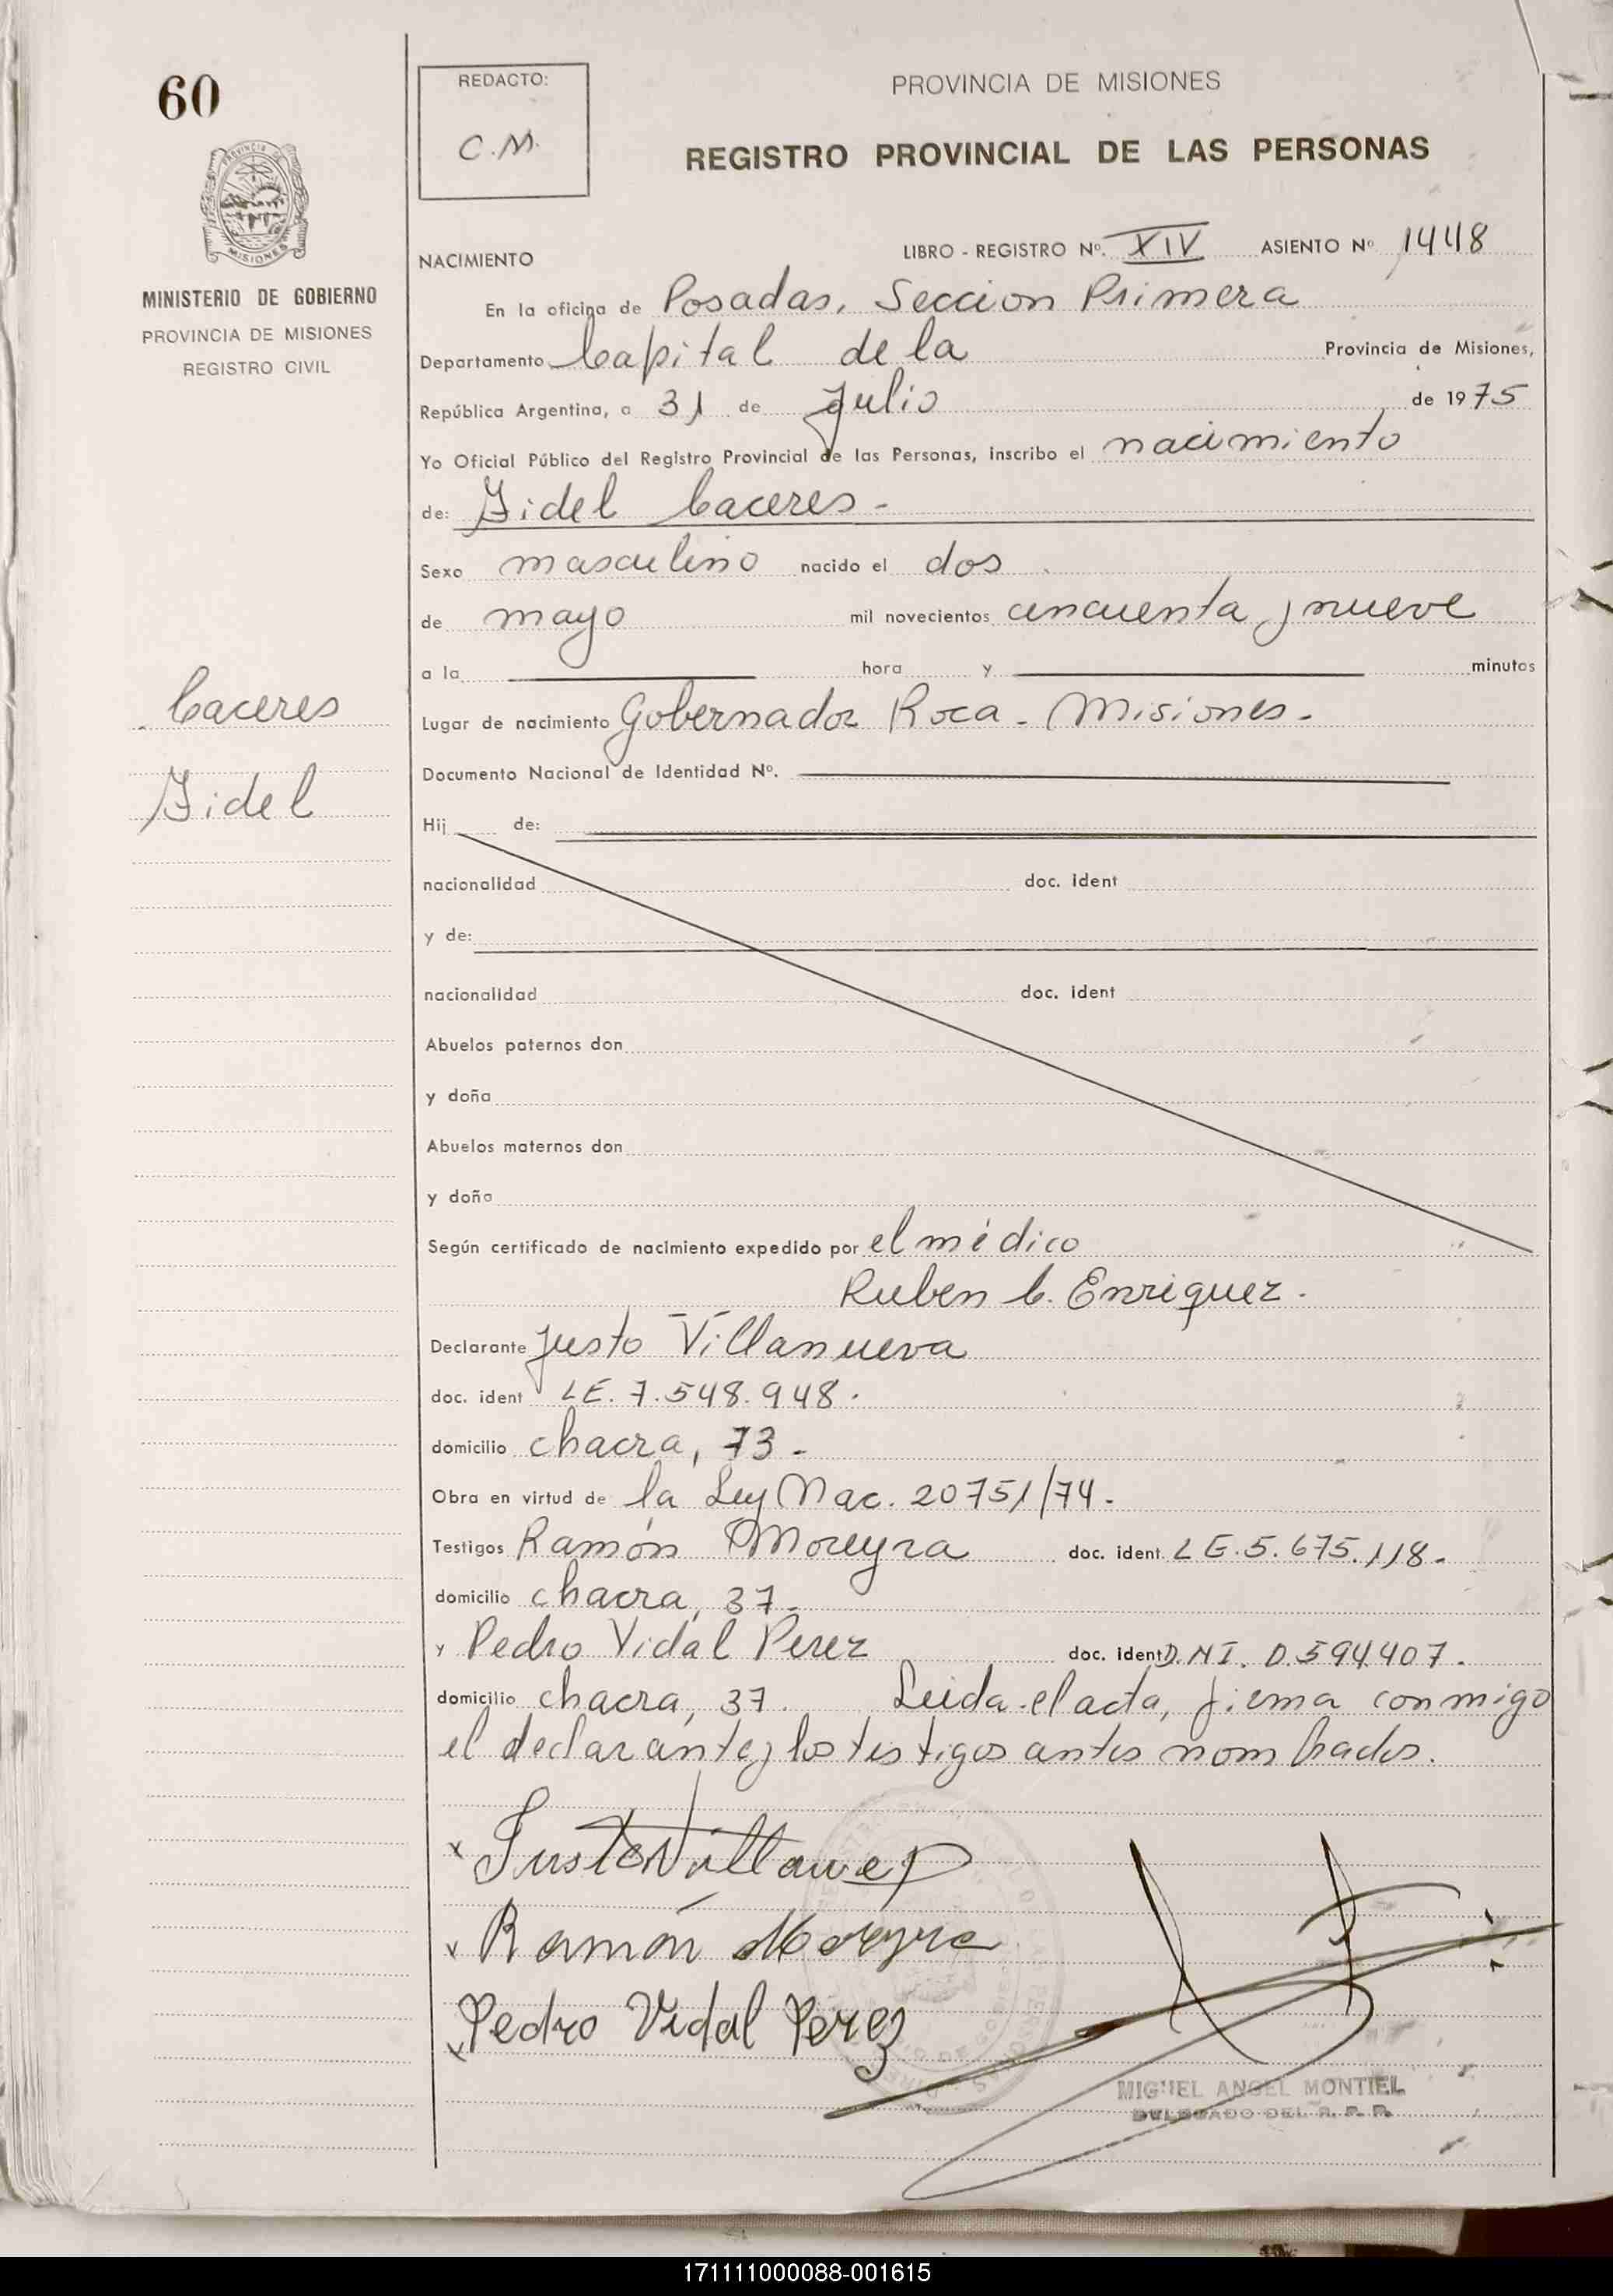 60
REDACTO:
C.M.
PROVINCIA DE MISIONES
REGISTRO PROVINCIAL DE LAS PERSONAS
PROVINCIA
MISIONES
MINISTERIO DE GOBIERNO
PROVINCIA DE MISIONES
REGISTRO CIVIL
Caceres
Fidel
NACIMIENTO LIBRO - REGISTRO Nº. XIV ASIENTO Nº 1448
En la oficina de Posadas, Seccion Primera
Departamento Capital de la Provincia de Misiones,
República Argentina, a 31 de Julio de 1975
Yo Oficial Público del Registro Provincial de las Personas, inscribo el nacimiento
de: Fidel Caceres -
Sexo masculino nacido el dos
de mayo mil novecientos cincuenta y nueve
a la hora y minutos
Lugar de nacimiento Gobernador Roca - Misiones -
Documento Nacional de Identidad Nº.
Hij de:
nacionalidad doc. ident
y de:
nacionalidad doc. ident
Abuelos paternos don
y doña
Abuelos maternos don
y doña
Según certificado de nacimiento expedido por el médico
Ruben C. Enriquez -
Declarante Justo Villanueva
doc. ident LE. 7.548.948.
domicilio chacra, 73 -
Obra en virtud de la Ley Nac. 20751/74 -
Testigos Ramón Moreyra doc. ident. LE.5.675.118 -
domicilio chacra, 37 -
y Pedro Vidal Perez doc. ident D.NI. 0.594.407 -
domicilio chacra, 37. Leida el acta, firma conmigo
el declarante y los testigos antes nombrados.
x Justo Villanue
x Ramón Moreyra
x Pedro Vidal Perez
MIGUEL ANGEL MONTIEL
DELEGADO DEL R. P. P.
171111000088-001615